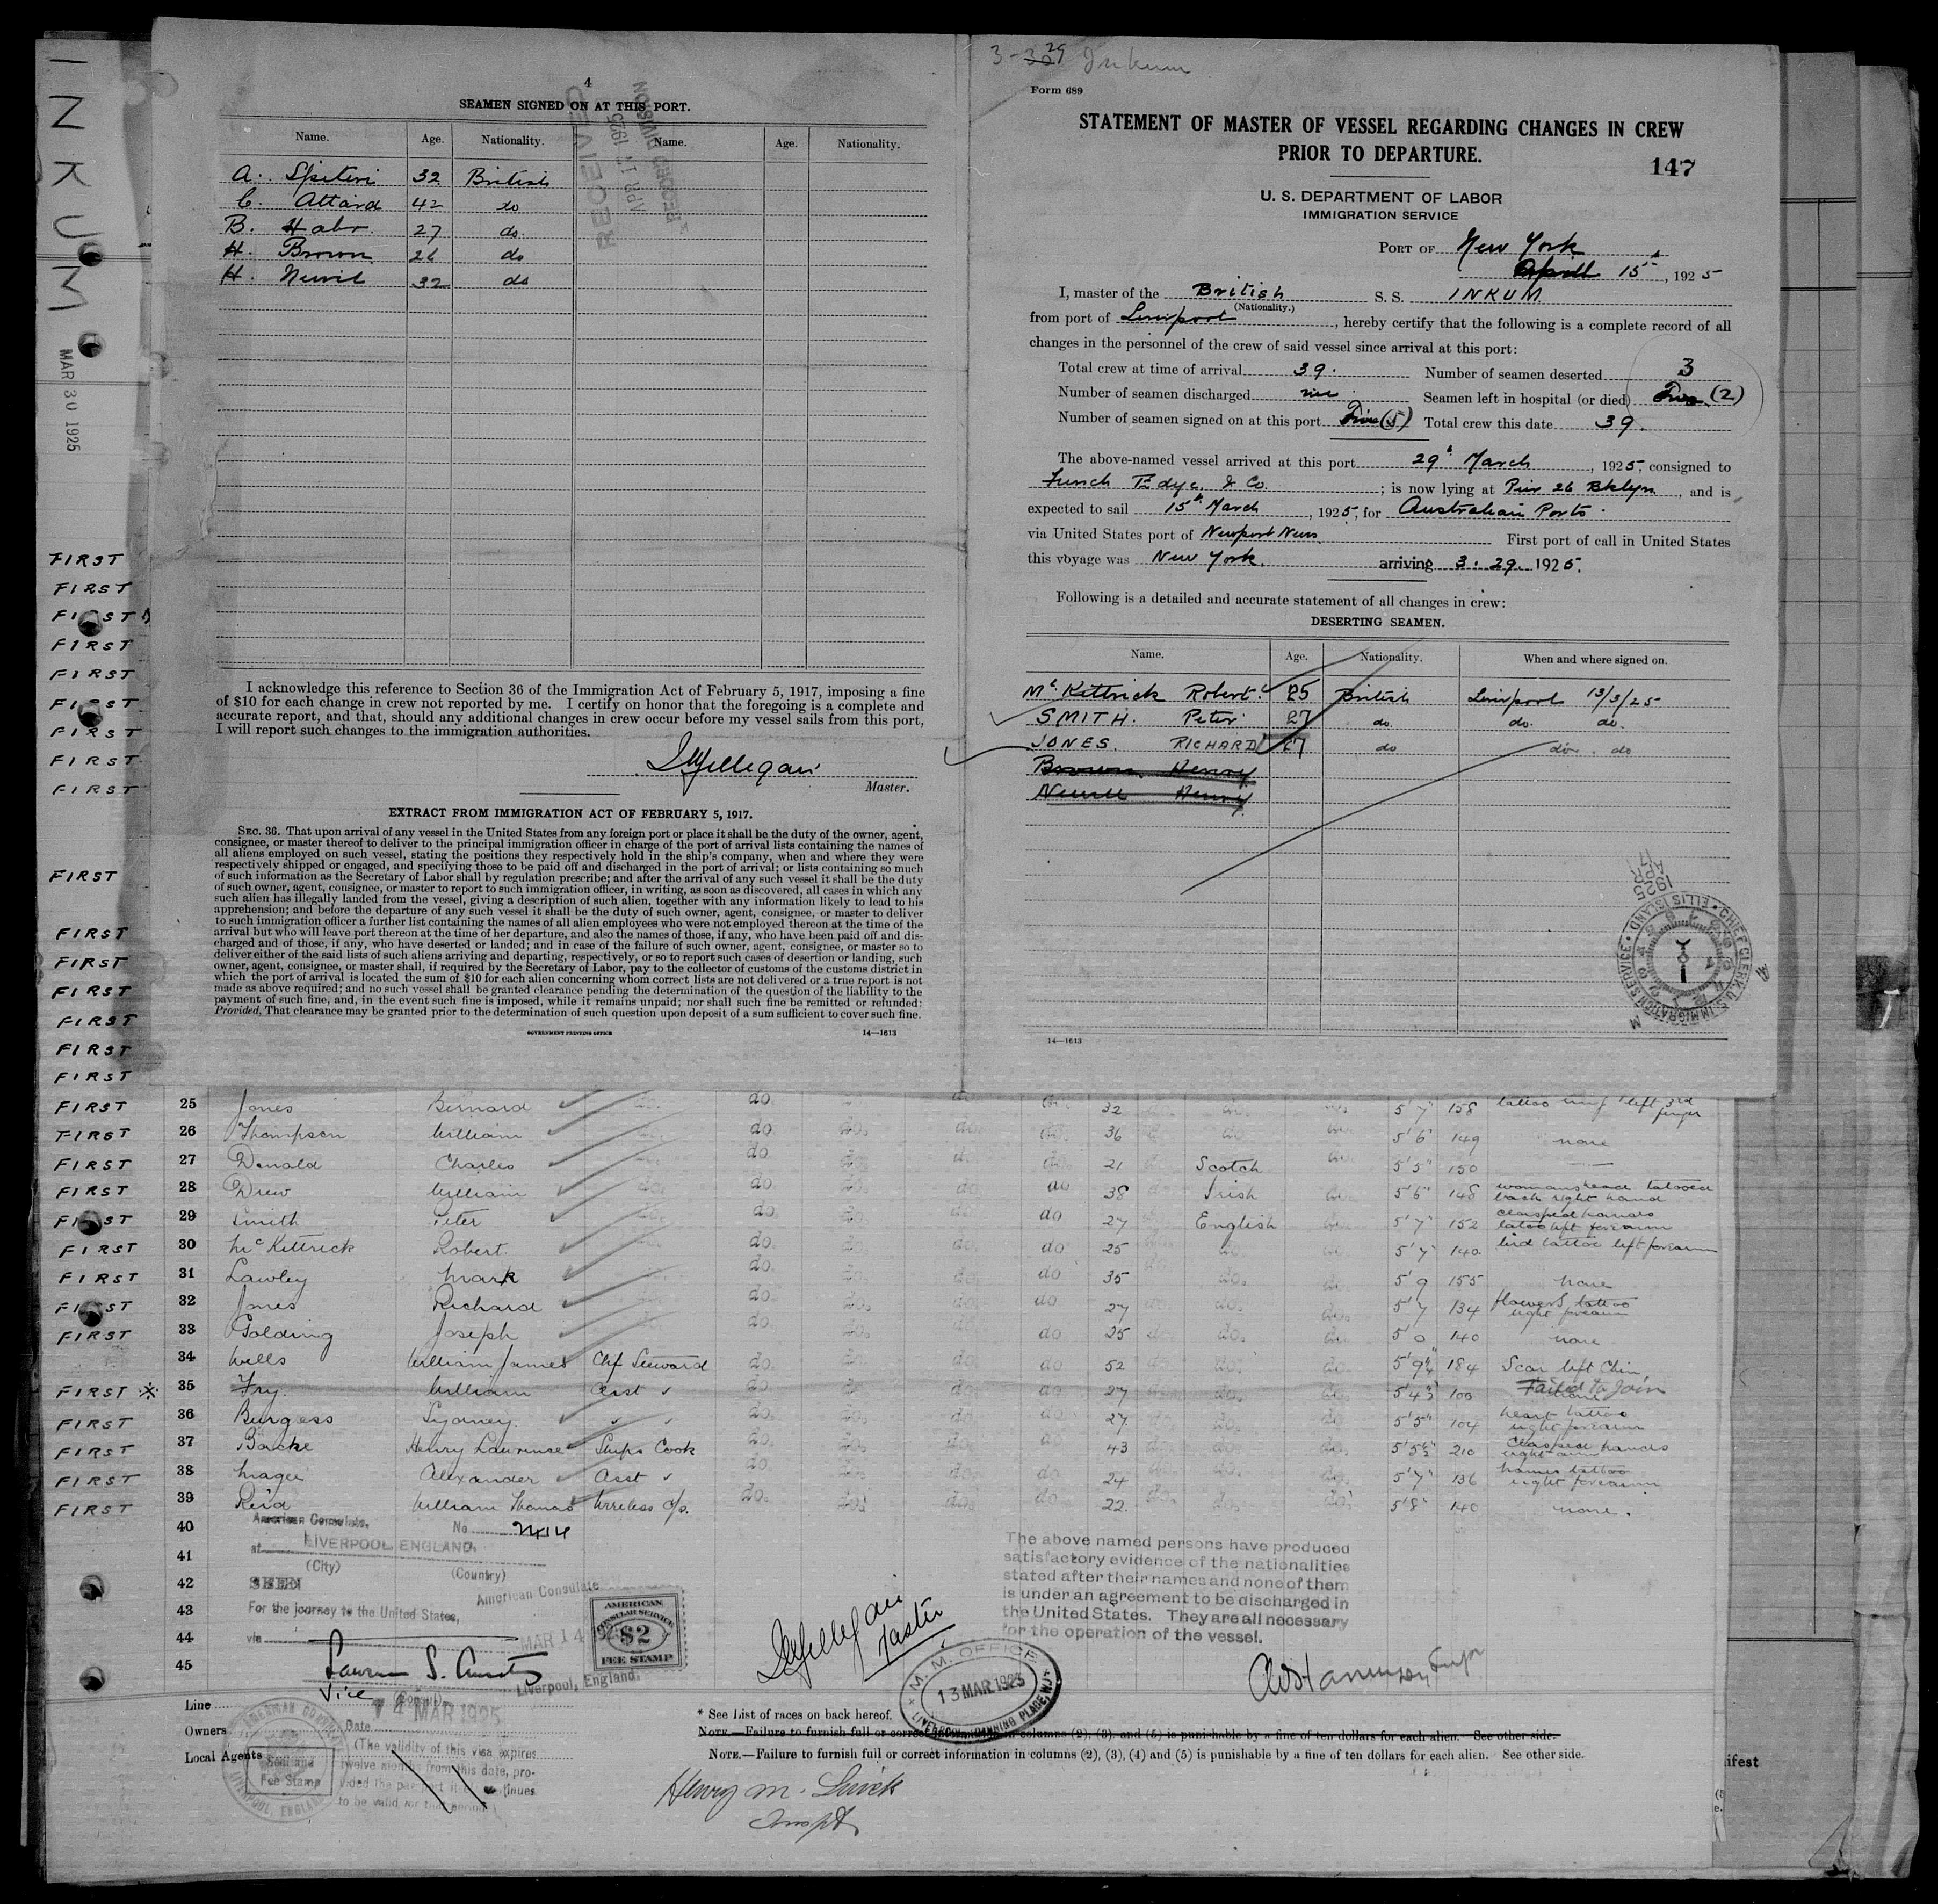 INKUM
MAR 30 1925
4
SEAMEN SIGNED ON AT THIS PORT.
Name. Age. Nationality. Name. Age. Nationality.
A. Spiteri 32 British
C. Attard 42 do
B. Habr. 27 do.
H. Brown 26 do
H. Newil 32 do
RECEIVED
APR 17 1925
RECORD DIVISION
I acknowledge this reference to Section 36 of the Immigration Act of February 5, 1917, imposing a fine
of $10 for each change in crew not reported by me. I certify on honor that the foregoing is a complete and
accurate report, and that, should any additional changes in crew occur before my vessel sails from this port,
I will report such changes to the immigration authorities.
Master.
EXTRACT FROM IMMIGRATION ACT OF FEBRUARY 5, 1917.
SEC. 36. That upon arrival of any vessel in the United States from any foreign port or place it shall be the duty of the owner, agent,
consignee, or master thereof to deliver to the principal immigration officer in charge of the port of arrival lists containing the names of
all aliens employed on such vessel, stating the positions they respectively hold in the ship's company, when and where they were
respectively shipped or engaged, and specifying those to be paid off and discharged in the port of arrival; or lists containing so much
of such information as the Secretary of Labor shall by regulation prescribe; and after the arrival of any such vessel it shall be the duty
of such owner, agent, consignee, or master to report to such immigration officer, in writing, as soon as discovered, all cases in which any
such alien has illegally landed from the vessel, giving a description of such alien, together with any information likely to lead to his
apprehension; and before the departure of any such vessel it shall be the duty of such owner, agent, consignee, or master to deliver
to such immigration officer a further list containing the names of all alien employees who were not employed thereon at the time of the
arrival but who will leave port thereon at the time of her departure, and also the names of those, if any, who have been paid off and dis-
charged and of those, if any, who have deserted or landed; and in case of the failure of such owner, agent, consignee, or master so to
deliver either of the said lists of such aliens arriving and departing, respectively, or so to report such cases of desertion or landing, such
owner, agent, consignee, or master shall, if required by the Secretary of Labor, pay to the collector of customs of the customs district in
which the port of arrival is located the sum of $10 for each alien concerning whom correct lists are not delivered or a true report is not
made as above required; and no such vessel shall be granted clearance pending the determination of the question of the liability to the
payment of such fine, and, in the event such fine is imposed, while it remains unpaid; nor shall such fine be remitted or refunded:
Provided, That clearance may be granted prior to the determination of such question upon deposit of a sum sufficient to cover such fine.
GOVERNMENT PRINTING OFFICE 14—1613
3-30 29 Inkum
Form 689
STATEMENT OF MASTER OF VESSEL REGARDING CHANGES IN CREW
PRIOR TO DEPARTURE.
147
U. S. DEPARTMENT OF LABOR
IMMIGRATION SERVICE
PORT OF New York
April 15th, 1925
I, master of the British S. S. INKUM
(Nationality.)
from port of Liverpool, hereby certify that the following is a complete record of all
changes in the personnel of the crew of said vessel since arrival at this port:
Total crew at time of arrival 39. Number of seamen deserted 3
Number of seamen discharged nil Seamen left in hospital (or died) Two (2)
Number of seamen signed on at this port Five (5) Total crew this date 39.
The above-named vessel arrived at this port 29th March, 1925, consigned to
Funch Edye & Co.; is now lying at Pier 26 Bklyn, and is
expected to sail 15th March, 1925, for Australian Ports.
via United States port of Newport News First port of call in United States
this voyage was New York. arriving 3. 29. 1925.
Following is a detailed and accurate statement of all changes in crew:
DESERTING SEAMEN.
Name. Age. Nationality. When and where signed on.
McKittrick Robert. 25 British Liverpool 13/3/25
SMITH. Peter 27 do. do. do.
JONES. RICHARD 27 do do. do
Brown Henry
Newill Henry
APR 17 1925
CHIEF CLERK, U.S. IMMIGRATION SERVICE • ELLIS ISLAND
14—1613
FIRST
FIRST
FIRST
FIRST
FIRST
FIRST
FIRST
FIRST
FIRST
FIRST
FIRST
FIRST
FIRST
FIRST
FIRST
FIRST
FIRST 25 Jones Bernard do. do. do. do. do. 32 do. do. do. 5'7" 158 left 3rd finger
FIRST 26 Thompson William do. do. do. do. do. 36 do do do. 5'6" 149 none
FIRST 27 Donald Charles do. do. do. do. do. 21 do. Scotch do. 5'5" 150 —
FIRST 28 Drew William do. do. do. do. do 38 do. Irish do. 5'6" 148 womans head tatooed back right hand
FIRST 29 Smith Peter do. do. do. do. do 27 do. English do. 5'7" 152 clasped hands tatoo left forearm
FIRST 30 McKittrick Robert. do. do. do. do. do 25 do. do. do. 5'7" 140 bird tattoo left forearm
FIRST 31 Lawley Mark do. do. do. do. do 35 do. do. do. 5'9 155 none
FIRST 32 Jones Richard do. do. do. do. do 27 do. do. do. 5'7 134 flowers tattoo right forearm
FIRST 33 Golding Joseph do. do. do. do. do 25 do. do. do. 5'0 140 none
34 Wells William James Chf Steward do. do. do. do 52 do. do. do. 5'9½" 184 Scar left Chin
FIRST ※ 35 Fry. William Asst " do. do. do. do 27 do. do. do. 5'4½" 100 Failed to Join
FIRST 36 Burgess Sydney. " " do. do. do. do 27. do. do. do. 5'5" 104 heart tattoo right forearm
FIRST 37 Backe Henry Lawrence Ships Cook do. do. do. do 43 do. do. do. 5'5½" 210 Clasped hands right arm
FIRST 38 Magee Alexander Asst " do. do. do. do 24 do. do. do. 5'7" 136 names tattoo right forearm
FIRST 39 Reid William Thomas Wireless Op. do. do. do. do 22. do. do. do. 5'8" 140 none.
40 American Consulate, No 2414
41 at LIVERPOOL, ENGLAND.
(City) (Country)
42 SEEN
43 For the journey to the United States,
44 via
45
American Consulate
MAR 14 1925
Liverpool, England.
AMERICAN
CONSULAR SERVICE
$2
FEE STAMP
Vice (Consul)
Master
The above named persons have produced
satisfactory evidence of the nationalities
stated after their names and none of them
is under an agreement to be discharged in
the United States. They are all necessary
for the operation of the vessel.
M. M. OFFICE
13 MAR 1925
LIVERPOOL, CANNING PLACE, W.J.
Line
Owners
Local Agents
14 MAR 1925
Date
(The validity of this visa expires
twelve months from this date, pro-
vided the passport it continues
to be valid for that period.)
AMERICAN CONSULATE
LIVERPOOL, ENGLAND
Seal and
Fee Stamp
* See List of races on back hereof.
NOTE.—Failure to furnish full or correct information in columns (2), (3), and (5) is punishable by a fine of ten dollars for each alien. See other side.
NOTE.—Failure to furnish full or correct information in columns (2), (3), (4) and (5) is punishable by a fine of ten dollars for each alien. See other side.
Henry M.
Inspt.
ifest